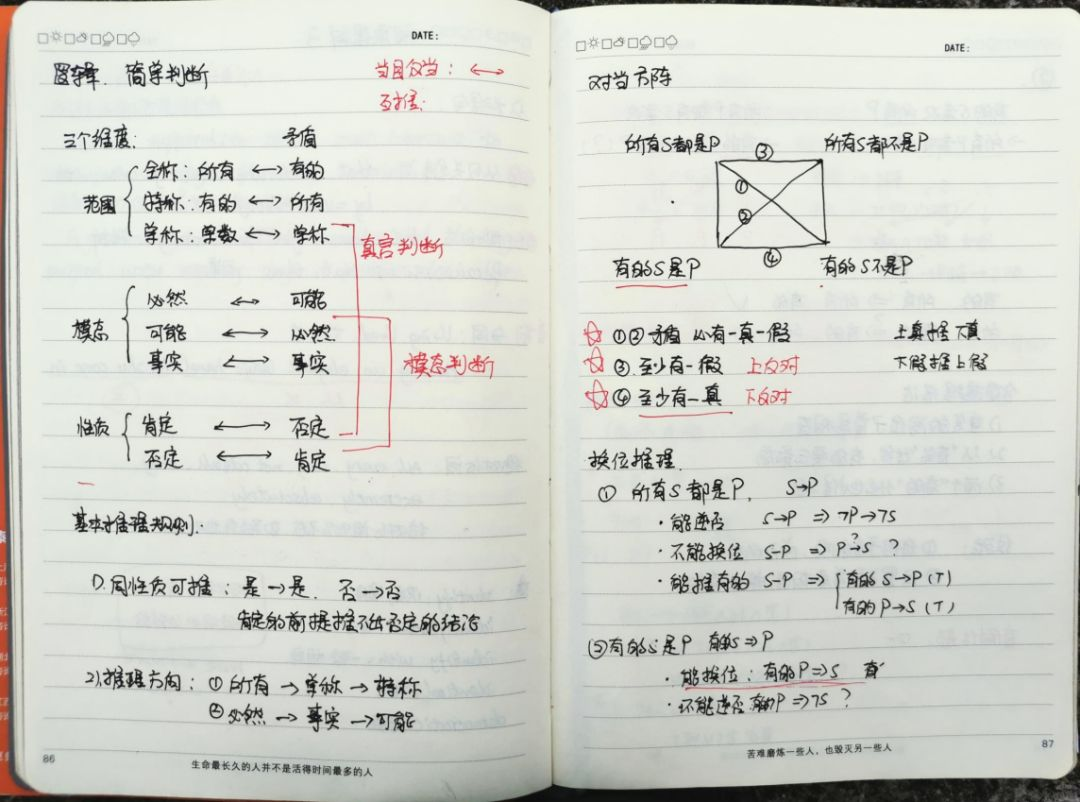 DATE:
逻辑. 简单判断
当且仅当: ↔
互推.
三个维度: 矛盾
范围
全称: 所有 ↔ 有的
特称: 有的 ↔ 所有
单称: 单数 ↔ 单称
直言判断
模态
必然 ↔ 可能
可能 ↔ 必然
事实 ↔ 事实
模态判断
性质
肯定 ↔ 否定
否定 ↔ 肯定
基本推理规则.
1). 同性质可推: 是→是. 否→否
肯定的前提推不出否定的结论
2). 推理方向: ① 所有→单称→特称
② 必然→事实→可能
86
生命最长久的人并不是活得时间最多的人
DATE:
对当方阵
所有S都是P ③ 所有S都不是P
①
②
有的S是P ④ 有的S不是P
☆ ①② 矛盾 必有一真一假 上真推下真
☆ ③ 至少有一假 上反对 下假推上假
☆ ④ 至少有一真 下反对
换位推理.
① 所有S都是P. S→P
· 能逆否 S→P ⇒ ¬P→¬S
· 不能换位 S→P ⇒ P→S ?
· 能推有的 S→P ⇒ 有的S→P (T)
有的P→S (T)
② 有的S是P 有的S⇒P
· 能换位: 有的P⇒S
· 不能逆否 有的¬P⇒¬S ?
苦难磨炼一些人，也毁灭另一些人
87